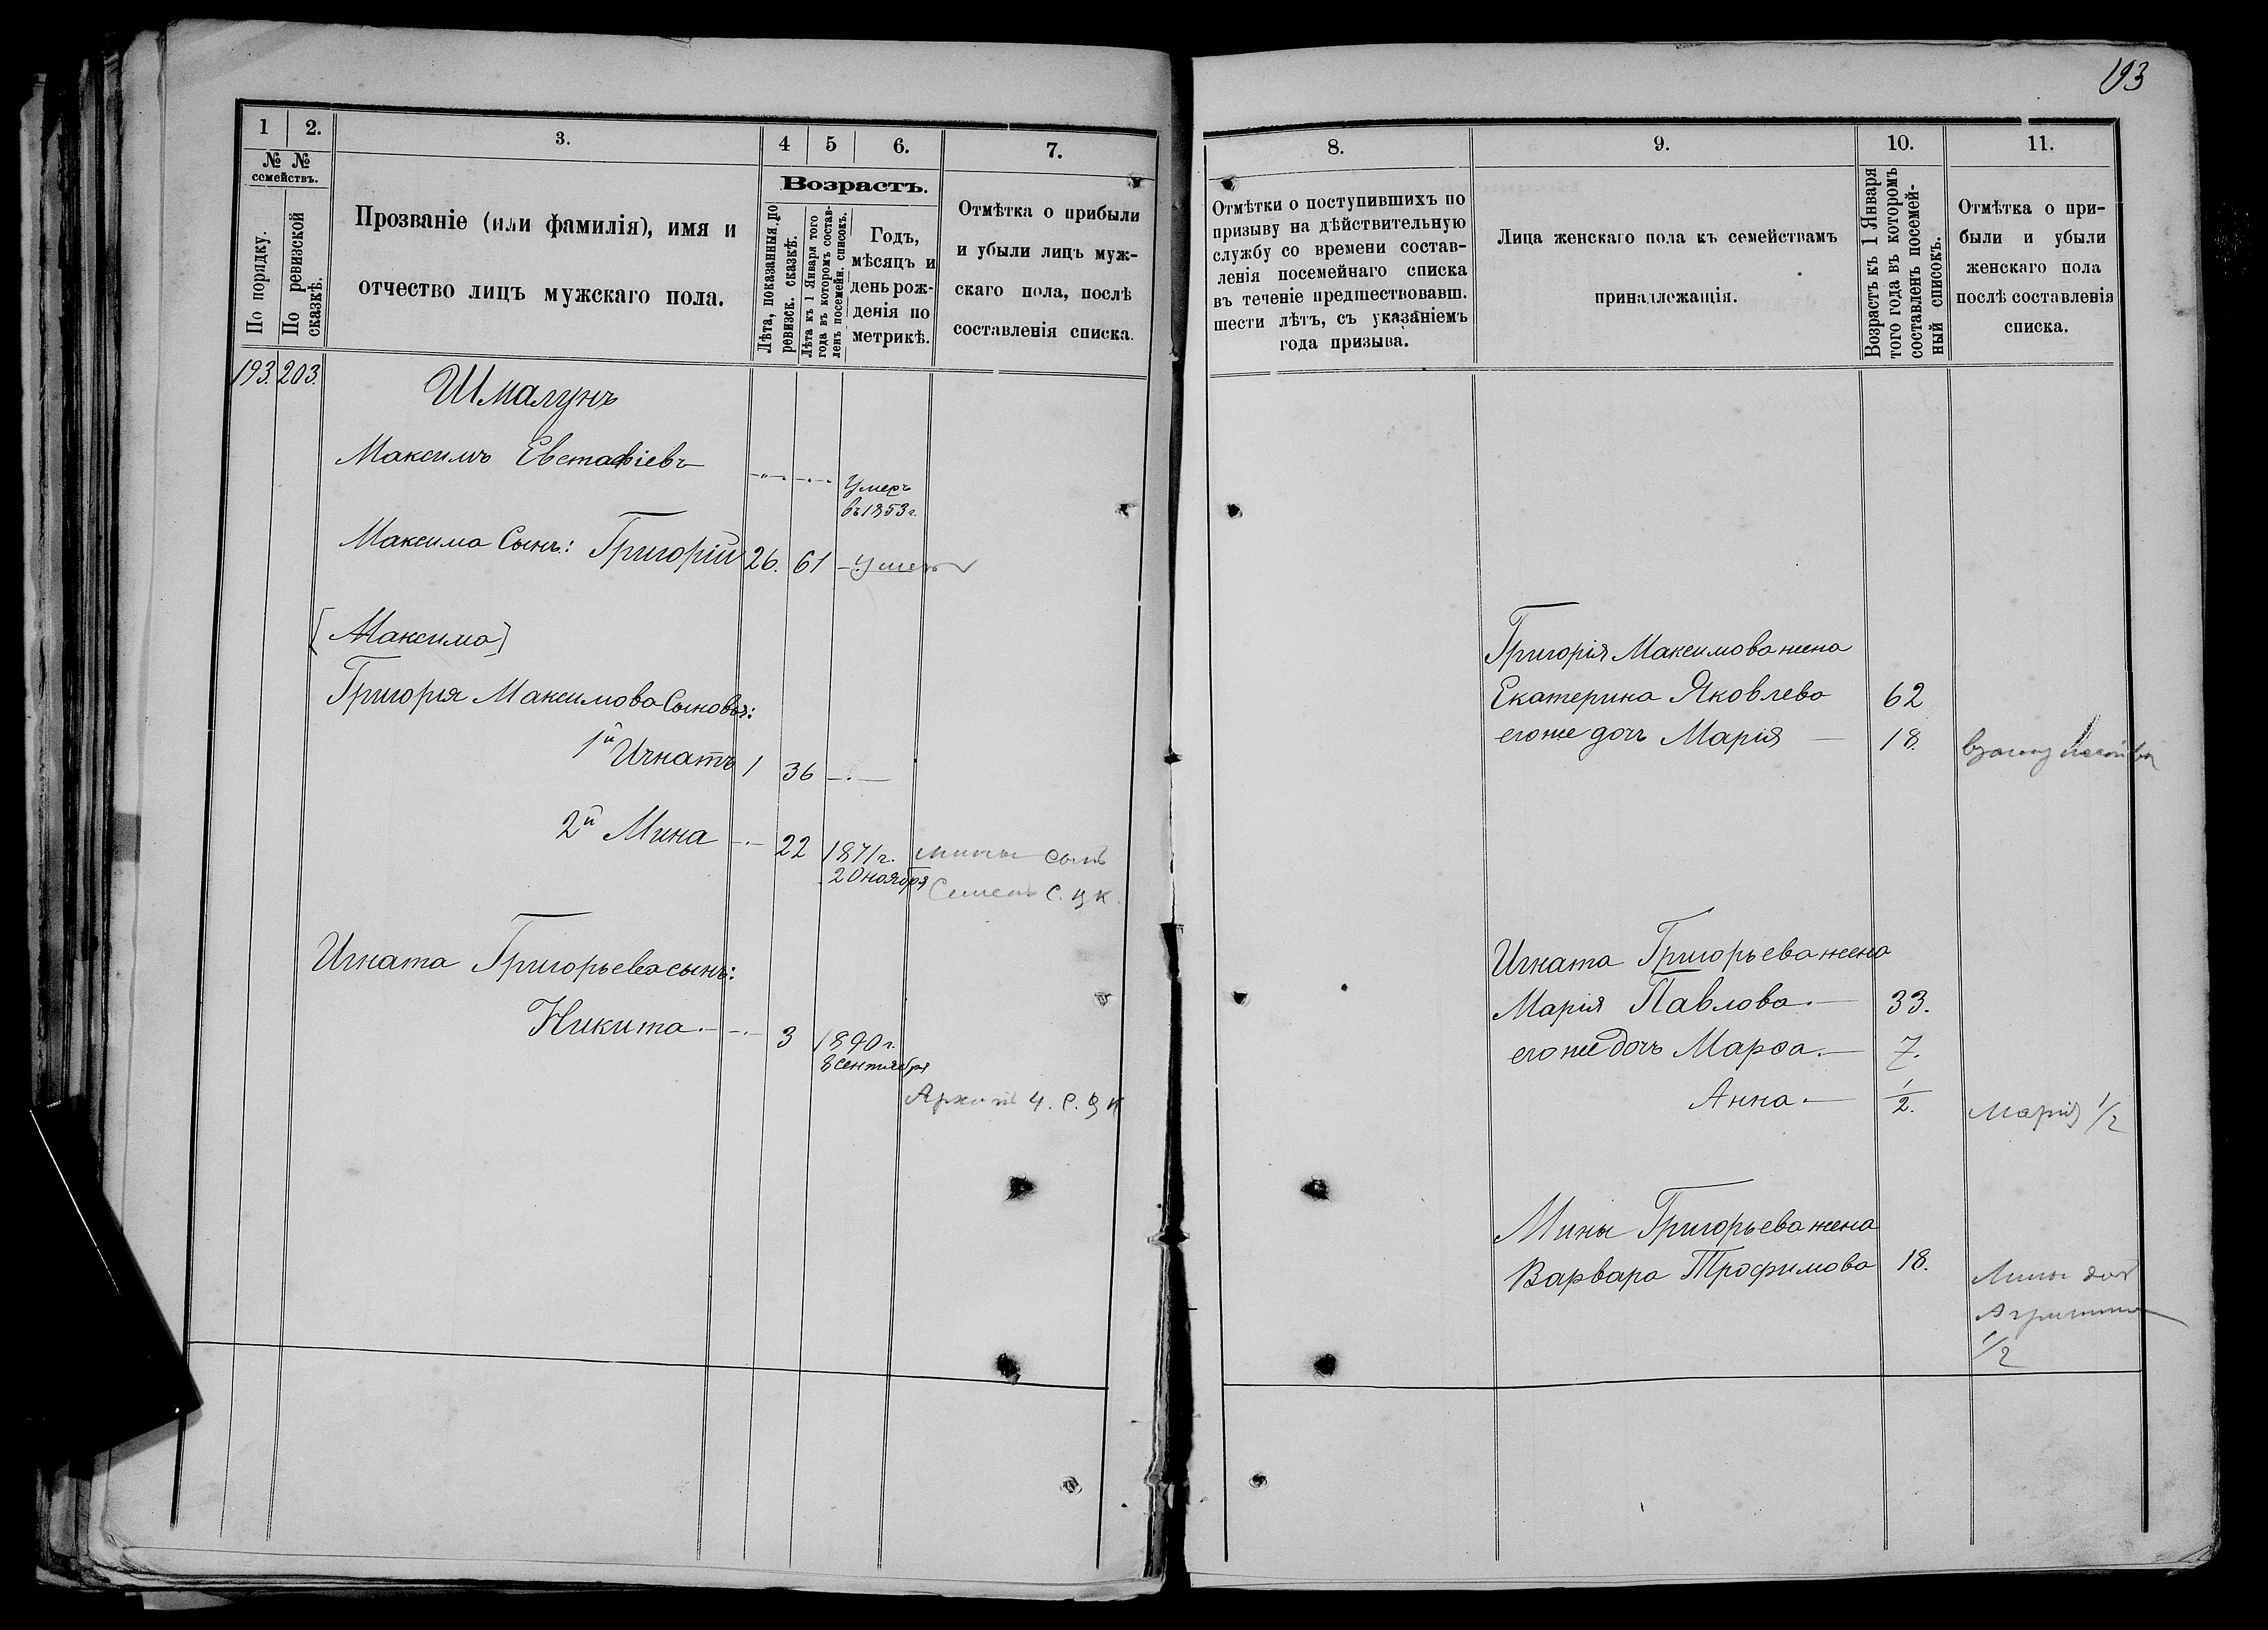 193
1
2.
3.
4
5
6.
7.
№ №
семействъ.
По порядку.
По ревизской
сказкѣ.
Прозваніе (или фамилія), имя и
отчество лицъ мужскаго пола.
Возрастъ.
Лѣта, показанныя по
ревизск. сказкѣ.
Лѣта къ 1 Января того
года въ которомъ состав-
ленъ посемейн. списокъ.
Годъ,
мѣсяцъ и
день рож-
денія по
метрикѣ.
Отмѣтка о прибыли
и убыли лицъ муж-
скаго пола, послѣ
составленія списка.
193. 203.
Шмалунъ
Максимъ Евстафіевъ
Умеръ
въ 1853 г.
Максима Сынъ: Григорій 26. 61 умеръ
[Максима]
Григорія Максимова Сыновья:
1й Игнатъ 1 36
2й Мина 22 1871 г. Мины сынъ
20 ноября Семенъ
Игната Григорьева сынъ:
Никита 3 1890 г.
8 сентября
8.
9.
10.
11.
Отмѣтки о поступившихъ по
призыву на дѣйствительную
службу со времени состав-
ленія посемейнаго списка
въ теченіе предшествовавш.
шести лѣтъ, съ указаніемъ
года призыва.
Лица женскаго пола къ семействамъ
принадлежащія.
Возрастъ къ 1 Января
того года въ которомъ
составленъ посемей-
ный списокъ.
Отмѣтка о при-
были и убыли
женскаго пола
послѣ составленія
списка.
Григорія Максимова жена
Екатерина Яковлева 62
его же дочь Марія 18.
Игната Григорьева жена
Марія Павлова 33.
его же дочь Марѳа 7.
Анна 1/2. Марія 1/2
Мины Григорьева жена
Варвара Трофимова 18. Мины доч
Агрипина
1/2